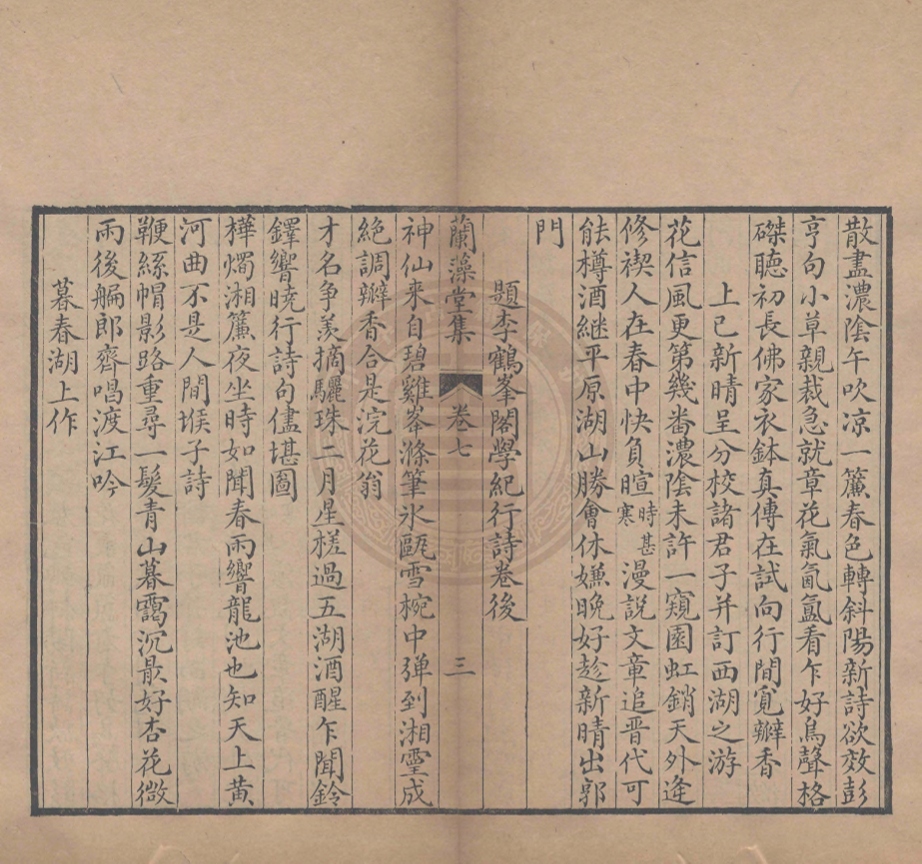 散盡濃陰午吹凉一簾春色轉斜陽新詩欲效彭
亨句小草親裁急就章花氣氤氲看乍好鳥聲格
磔聽初長佛家衣鉢真傳在試向行間覔瓣香
上巳新晴呈分校諸君子并訂西湖之游
花信風更第幾番濃陰未許一窺園虹銷天外逢
修禊人在春中快負暄時甚寒漫說文章追晋代可
能樽酒継平原湖山勝會休嫌晚好趁新晴出郭
門
題李鶴峯閣學紀行詩卷後
蘭藻堂集 卷七 三
神仙来自碧雞峯滌筆氷甌雪椀中弹到湘靈成
絶調瓣香合是浣花翁
才名争羨摘驪珠二月星槎過五湖酒醒乍聞鈴
鐸響曉行詩句儘堪圖
樺燭湘簾夜坐時如聞春雨響龍池也知天上黄
河曲不是人間堠子詩
鞭絲帽影路重尋一髮青山暮靄沉最好杏花微
雨後艑郎齊唱渡江吟
暮春湖上作